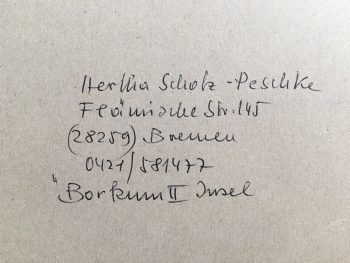 Hertha Scholz-Peschke
Flämische Str. 145
(28259) Bremen
0421/581477
"Borkum II Insel